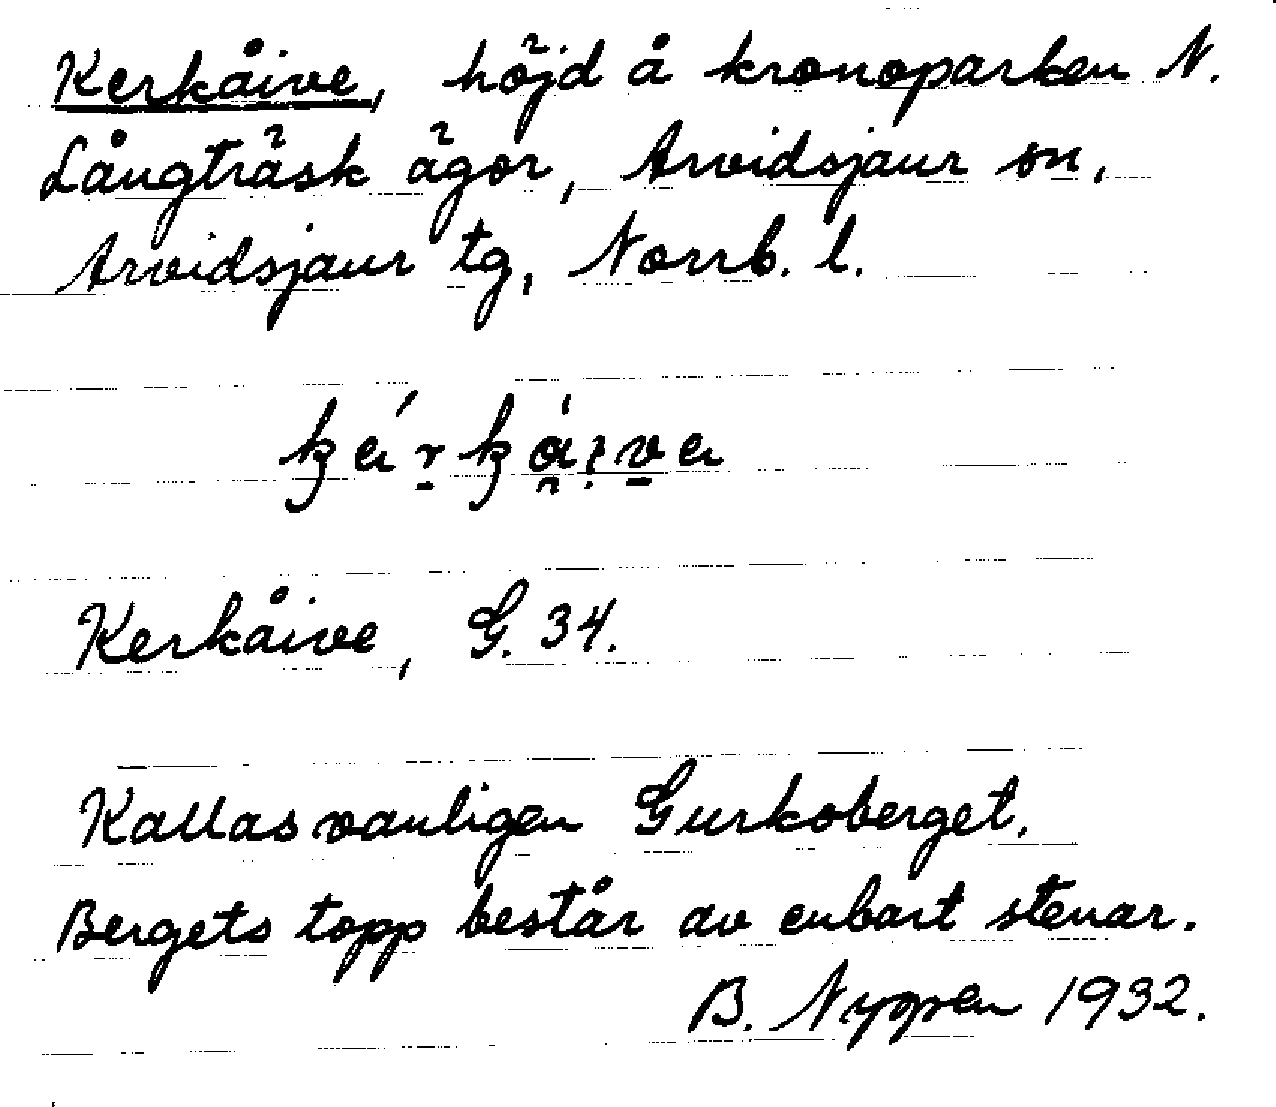 Kerkåive, höjd å kronoparken N.
Långträsk ägor, Arvidsjaur sn,
Arvidsjaur tg, Norrb. l.
Kerkåive, G. 34.
Kallas vanligen Gurkoberget.
Bergets topp består av enbart stenar.
B. 1932.